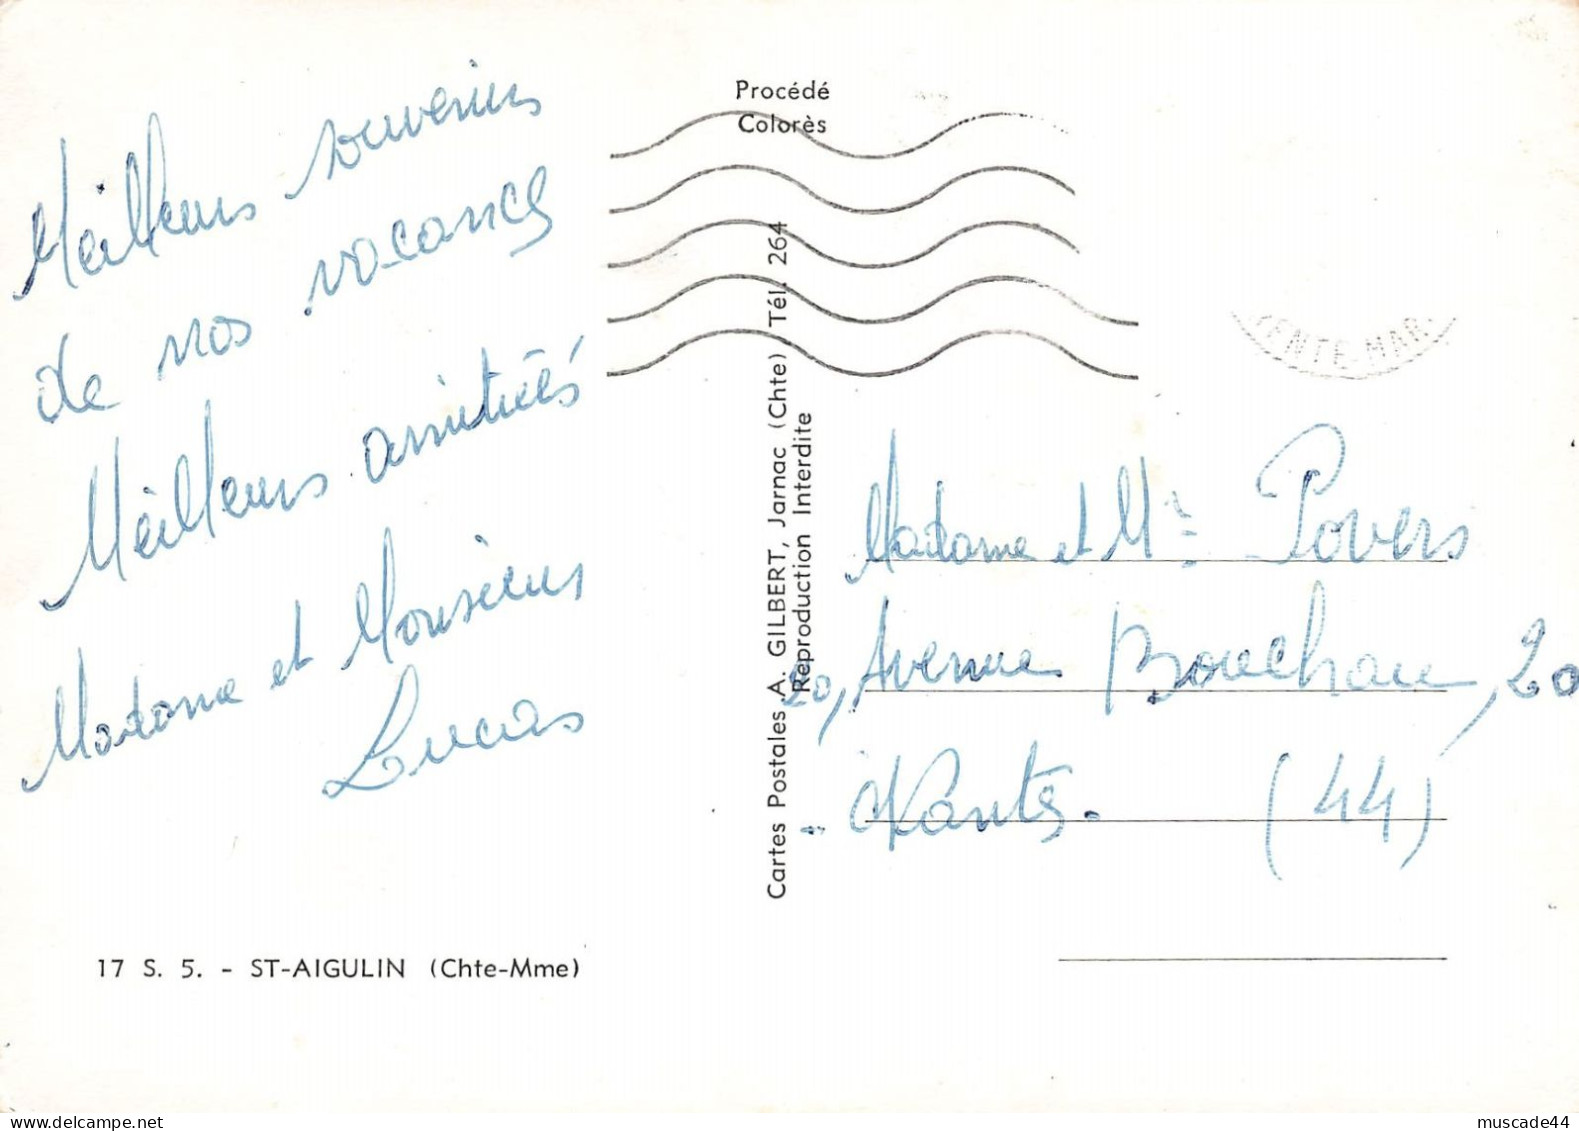 Meilleurs souvenirs
de nos vacances
Meilleurs amitiés
Madame et Monsieur
Lucas
17 S. 5. - ST-AIGULIN (Chte-Mme)
Procédé
Colorès
Cartes Postales A. GILBERT, Jarnac (Chte) Tél. 264
Reproduction Interdite
ENTE-MAR.
Madame et Mr Povers
20, Avenue Bouchau, 20
Nantes. (44)
muscade44